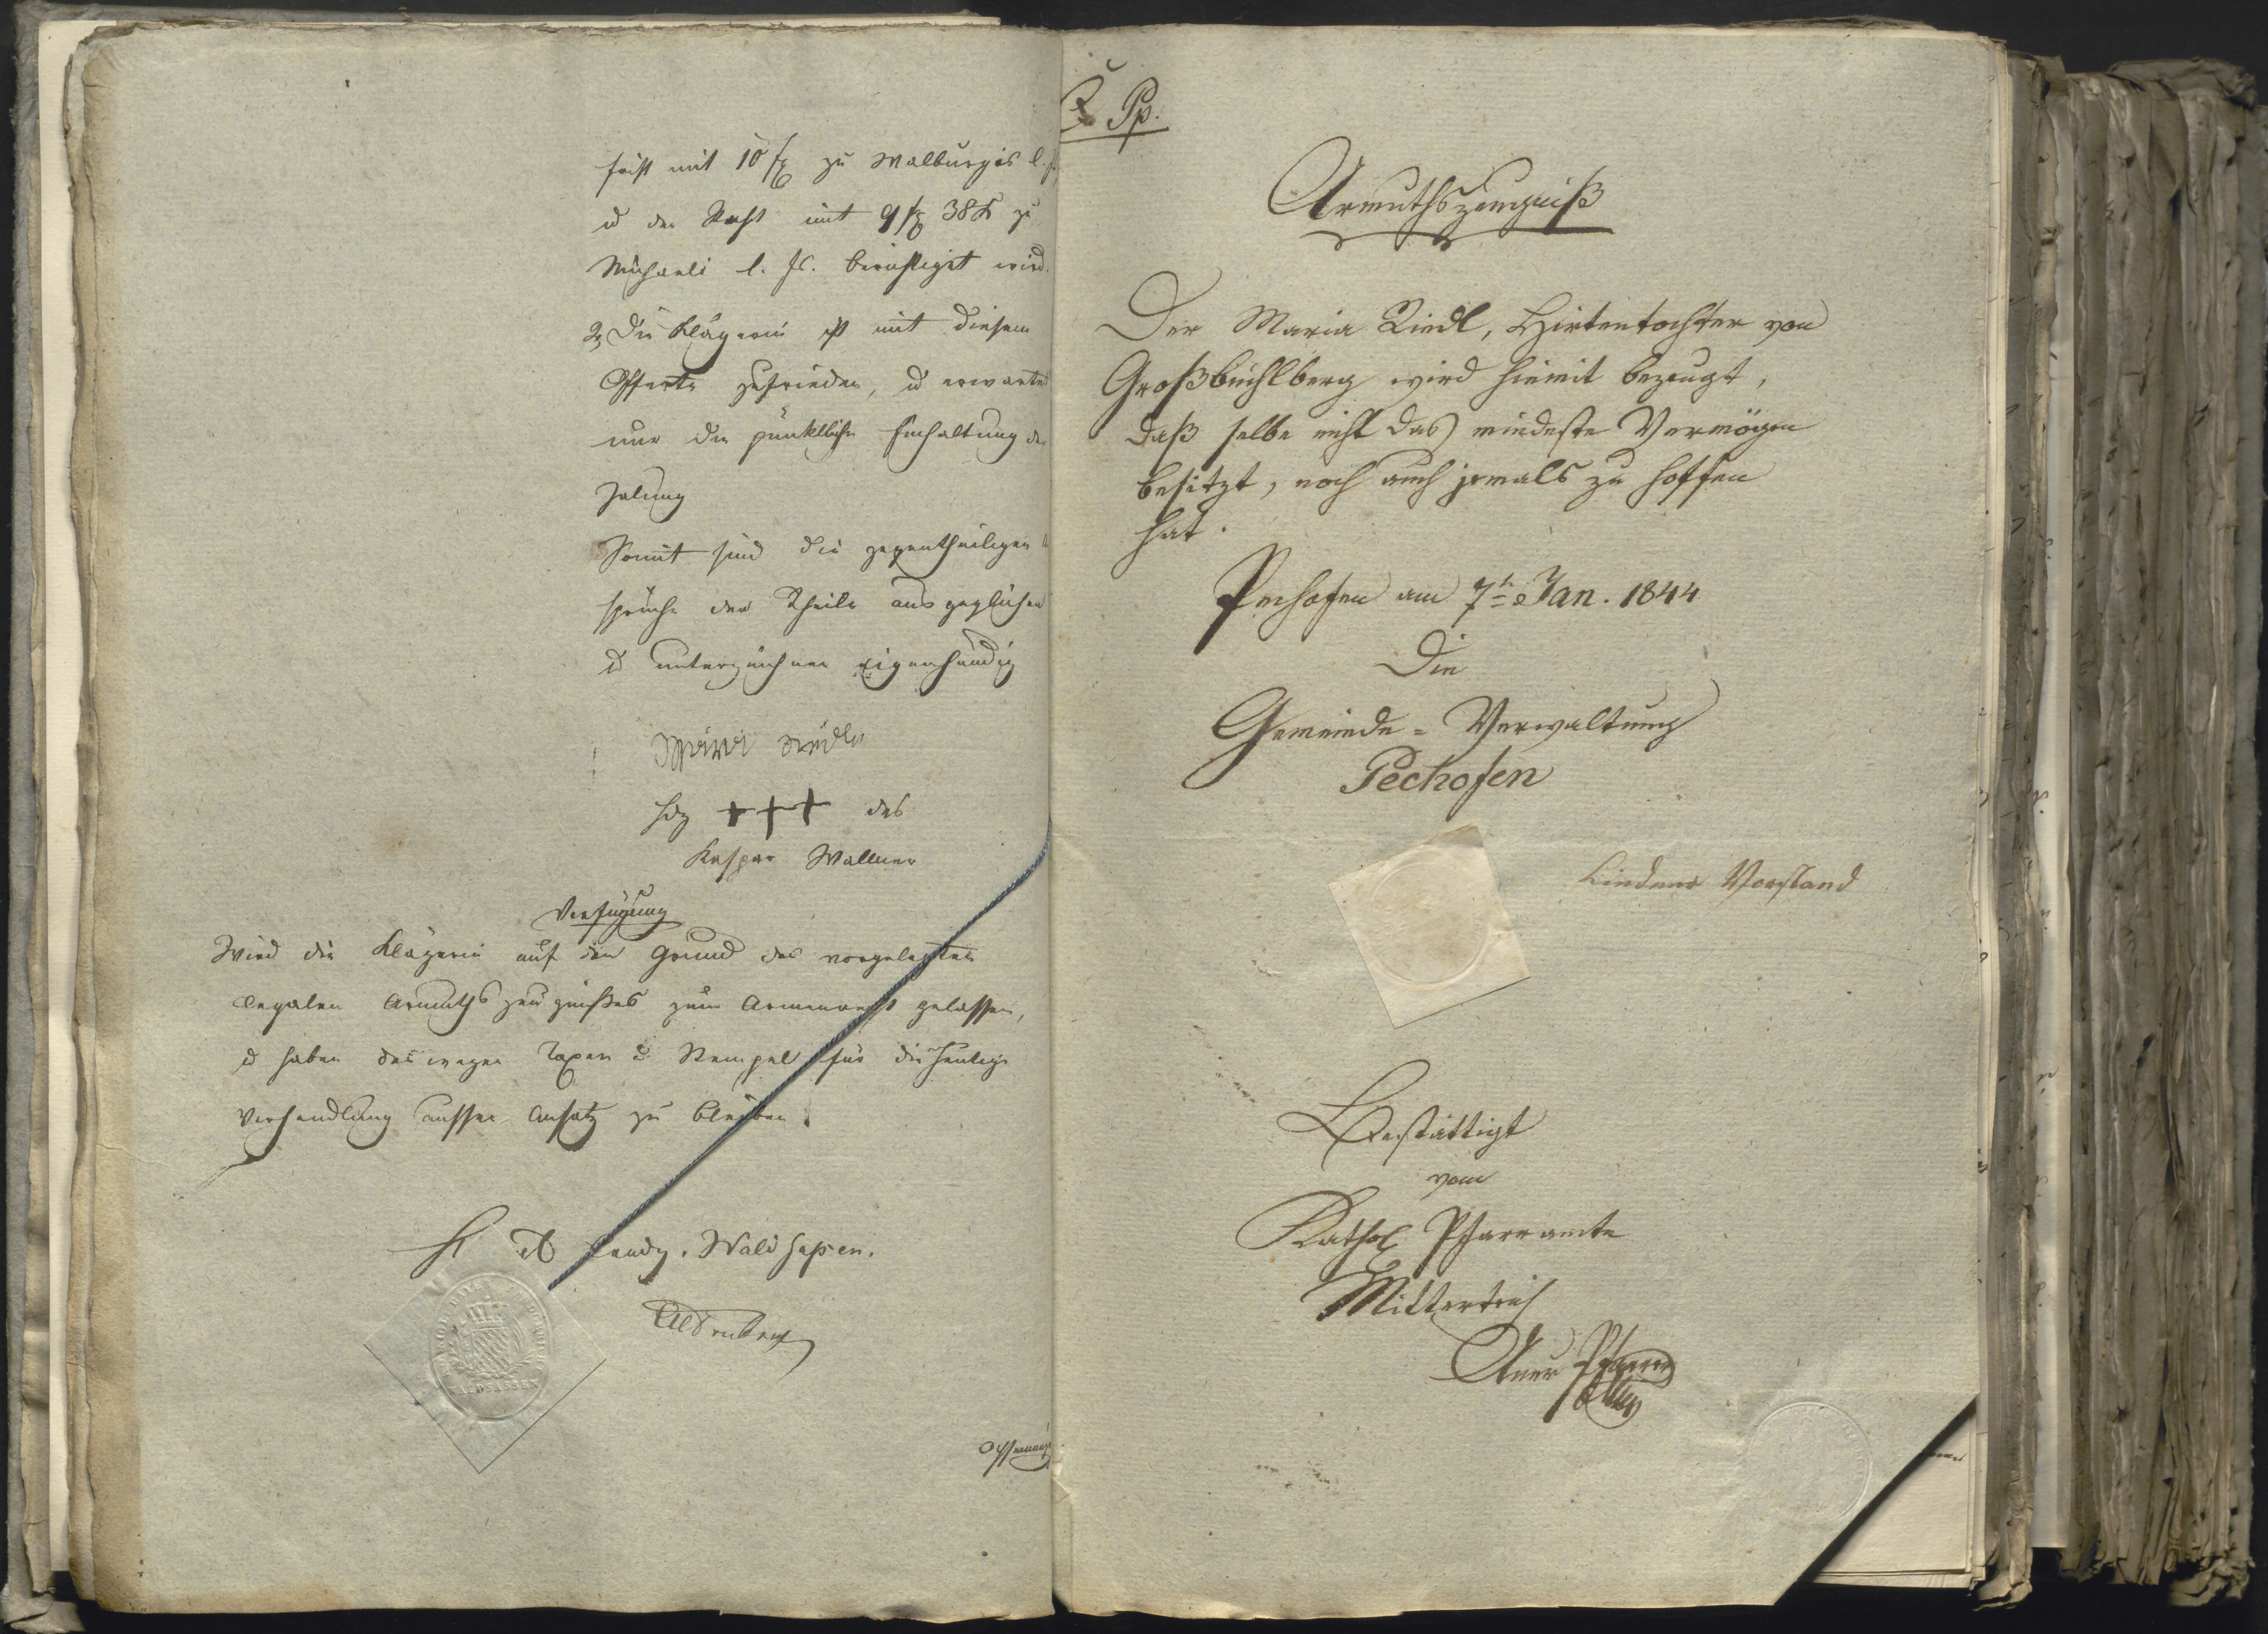 frist mit 10 f zu Walburgis l.
u der Rest mit 9 f 38 k zu
Michaeli l. Js. berichtiget wird.
2, Die Klägerin ist mit diesem
Offerte zufrieden, u erwartet
nur die pünktliche Einhaltung der
Zalung
Somit sind die gegentheiligen
sprüche der Theile ausgeglichen
u unterzeichnen eigenhändig
Maria Riedl
Hdz +++ des
Kaspar Wallner
Verfügung
Wird die Klägerin auf den Grund des vorgelegten
legalen Armuthszeugnißes zum Armenrecht gelassen,
u haben deswegen Taxen u Stempel für die heutige
Verhandlung ausser Ansatz zu bleiben.
Landg. Waldsaßen.
WALDSASSEN
Pp.
Armuthszeugniß
Der Maria Riedl, Hirtentochter von
Großbüchlberg wird hiemit bezeugt,
daß selbe nicht das mindeste Vermögen
besitzt, noch auch jemals zu hoffen
hat.
Pechofen am 7t Jan. 1844
Die
Gemeinde=Verwaltung
Pechofen
Lindner Vorstand
Bestättigt
vom
Kathol Pfarramte
Mitterteich
Auer Pfarrer